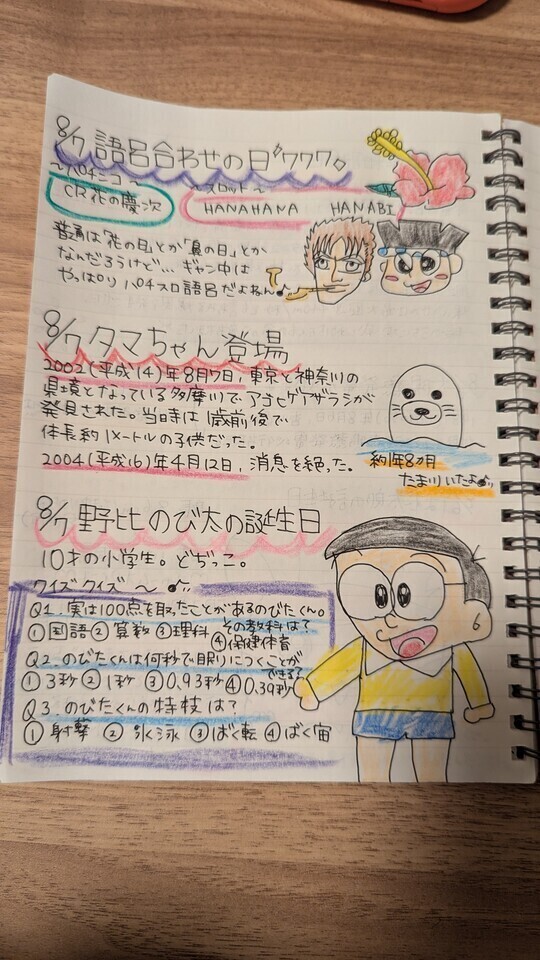 8/7 語呂合わせの日ワクワク。
〜パチンコ〜
CR花の慶次
〜スロット〜
HANAHANA HANABI
普通は「花の日」とか「鼻の日」とか
なんだろうけど… ギャン中は
やっぱり パチスロ語呂だよねん♪
8/7 タマちゃん登場
2002(平成14)年8月7日,東京と神奈川の
県境となっている多摩川でアゴヒゲアザラシが
発見された。当時は1歳前後で
体長約1メートルの子供だった。
2004(平成16)年4月12日,消息を絶った。
約1年8ヶ月
たまりいたよ♪
8/7 野比のび太の誕生日
10才の小学生。どぢっこ。
クイズクイズ〜♪
Q1.実は100点を取ったことがあるのびたくん。
その教科は?
①国語②算数③理科
④保健体育
Q2.のびたくんは何秒で眠りにつくことが
できる?
①3秒②1秒③0.93秒④0.39秒
Q3.のびたくんの特技は?
①射撃 ②水泳 ③ばく転 ④ばく宙